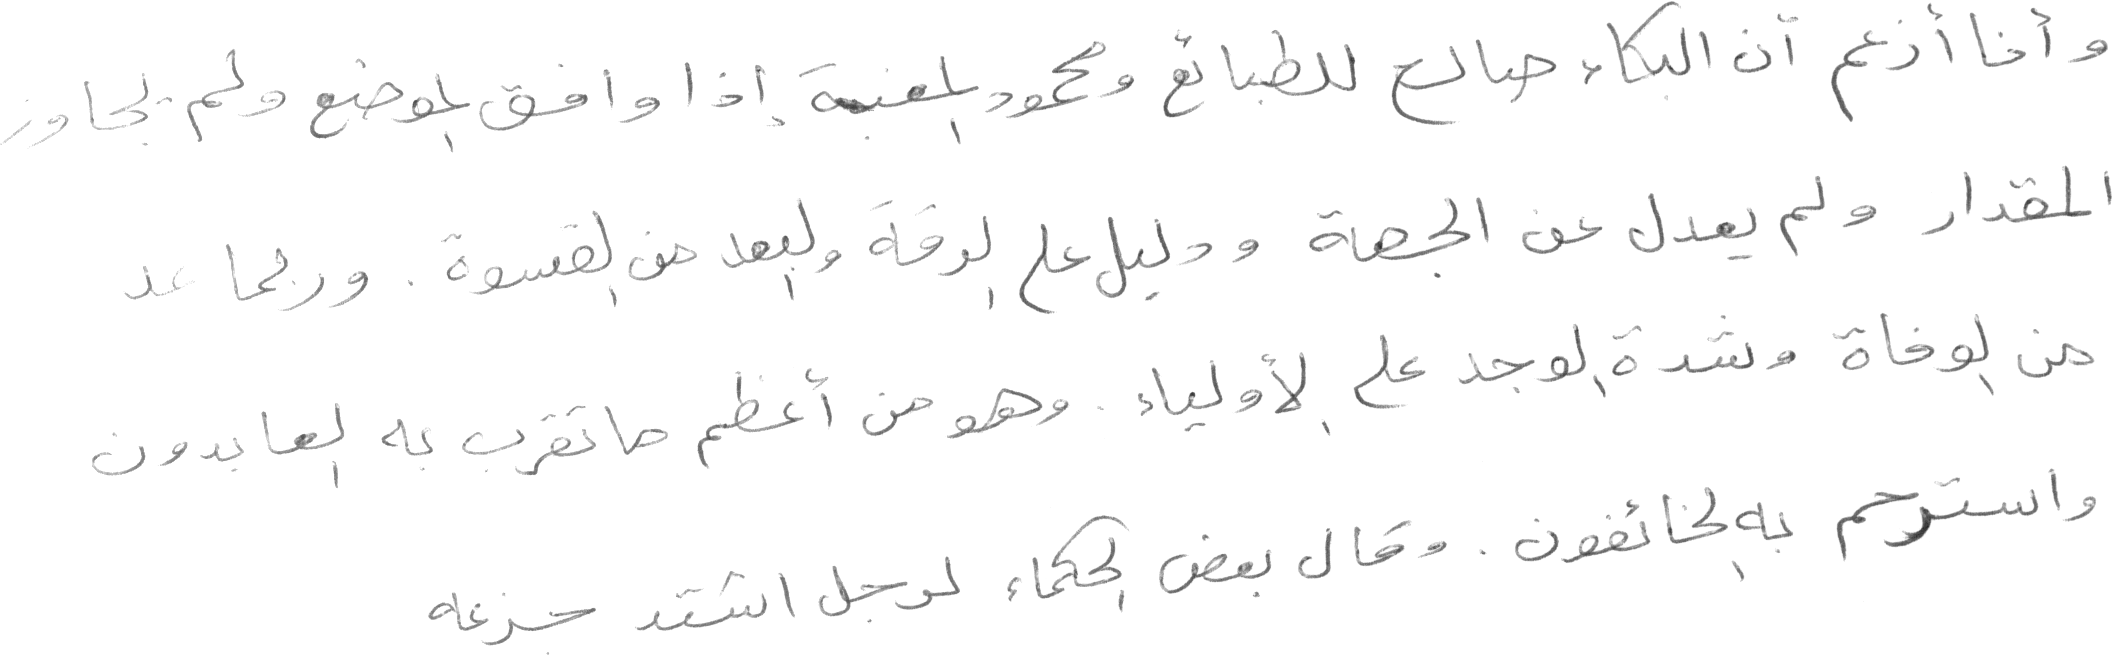 وأنا أزعم أن البكاء صالح للطبائع ومحمود المغبة إذا وافق الموضع ولم يجاوز
المقدار ولم يعدل عن الجهة ودليل على الرقة والبعد من القسوة. وربما عد
من الوفاة وشدة الوجد على الأولياء. وهو من أعظم ما تقرب به العابدون
واسترحم به الخائفون. وقال بعض الحكماء لرجل اشتد جزعه